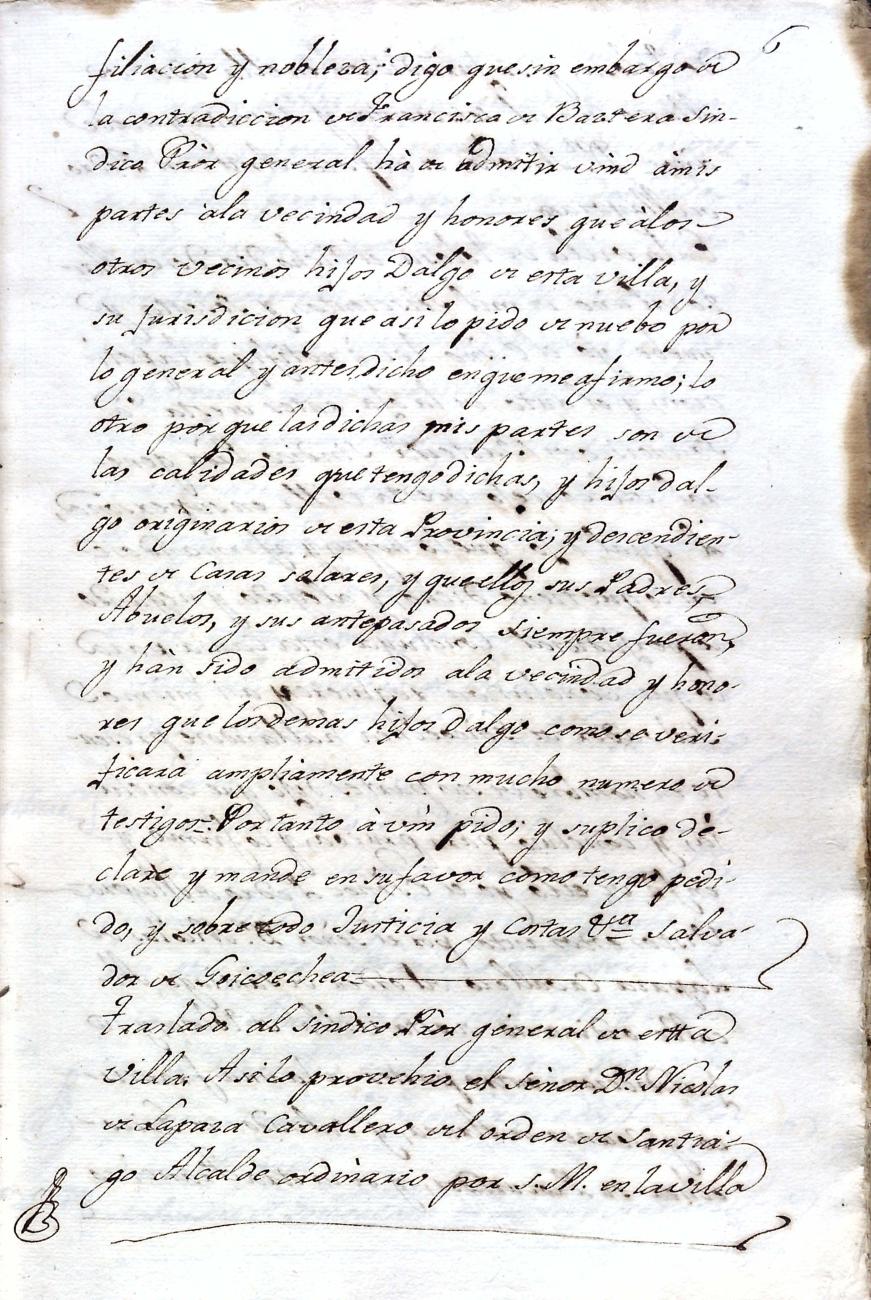 6
filiacion y nobleza; digo que sin embargo de
la contradiccion de Francisca de Bartera Sin-
dico Pror general hà de admitir vmd àmis
partes àla vecindad y honores que àlos
otros vecinos hijos Dalgo de esta villa, y
su Jurisdicion que asi lo pido de nuebo por
lo general y antesdicho en que me afirmo; lo
otro por que las dichas mis partes son de
las calidades que tengo dichas, y hijos dal-
go originarios de esta Provincia; y descendien-
tes de Casas solares, y que ellos sus Padres,
Abuelos, y sus antepasados siempre fueron,
y hàn sido admitidos ala vecindad y hono-
res que los demas hijos dalgo como se veri-
ficarà ampliamente con mucho numero de
testigos: Por tanto à vm pido; y suplico de-
clare y mande en su favor como tengo pedi-
do, y sobre todo Justicia y Costas &ra Salva-
dor de Goicoechea
Traslado al sindico Pror general de estta
Villa. Asi lo provehio el señor Dn. Nicolas
de Lapaza Cavallero del orden de Santia-
go Alcalde ordinario por S. M. en la villa